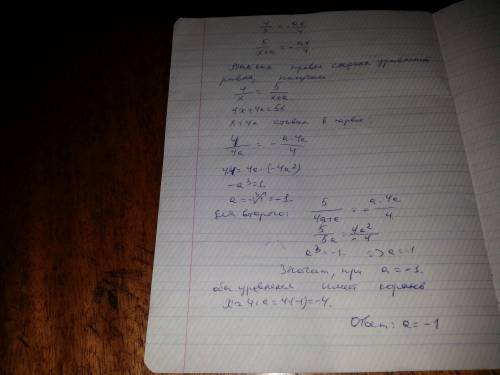 4/x = -ax/4
5/(x+a) = -ax/4
Так как правые стороны уравнений
равны, получаем
4/x = 5/(x+a)
4x+4a=5x
x=4a ставим в первое
4/4a = -a·4a/4
4·4=4a·(-4a²)
-a³=1
a=-∛1=-1.
Для второго: 5/(4a+a) = -a·4a/4
5/5a = 4a²/-4
a³=-1. => a=-1
Значит, при a=-1
оба уравнения имеют корень
x=4·a=4·(-1)=-4.
Ответ: a=-1